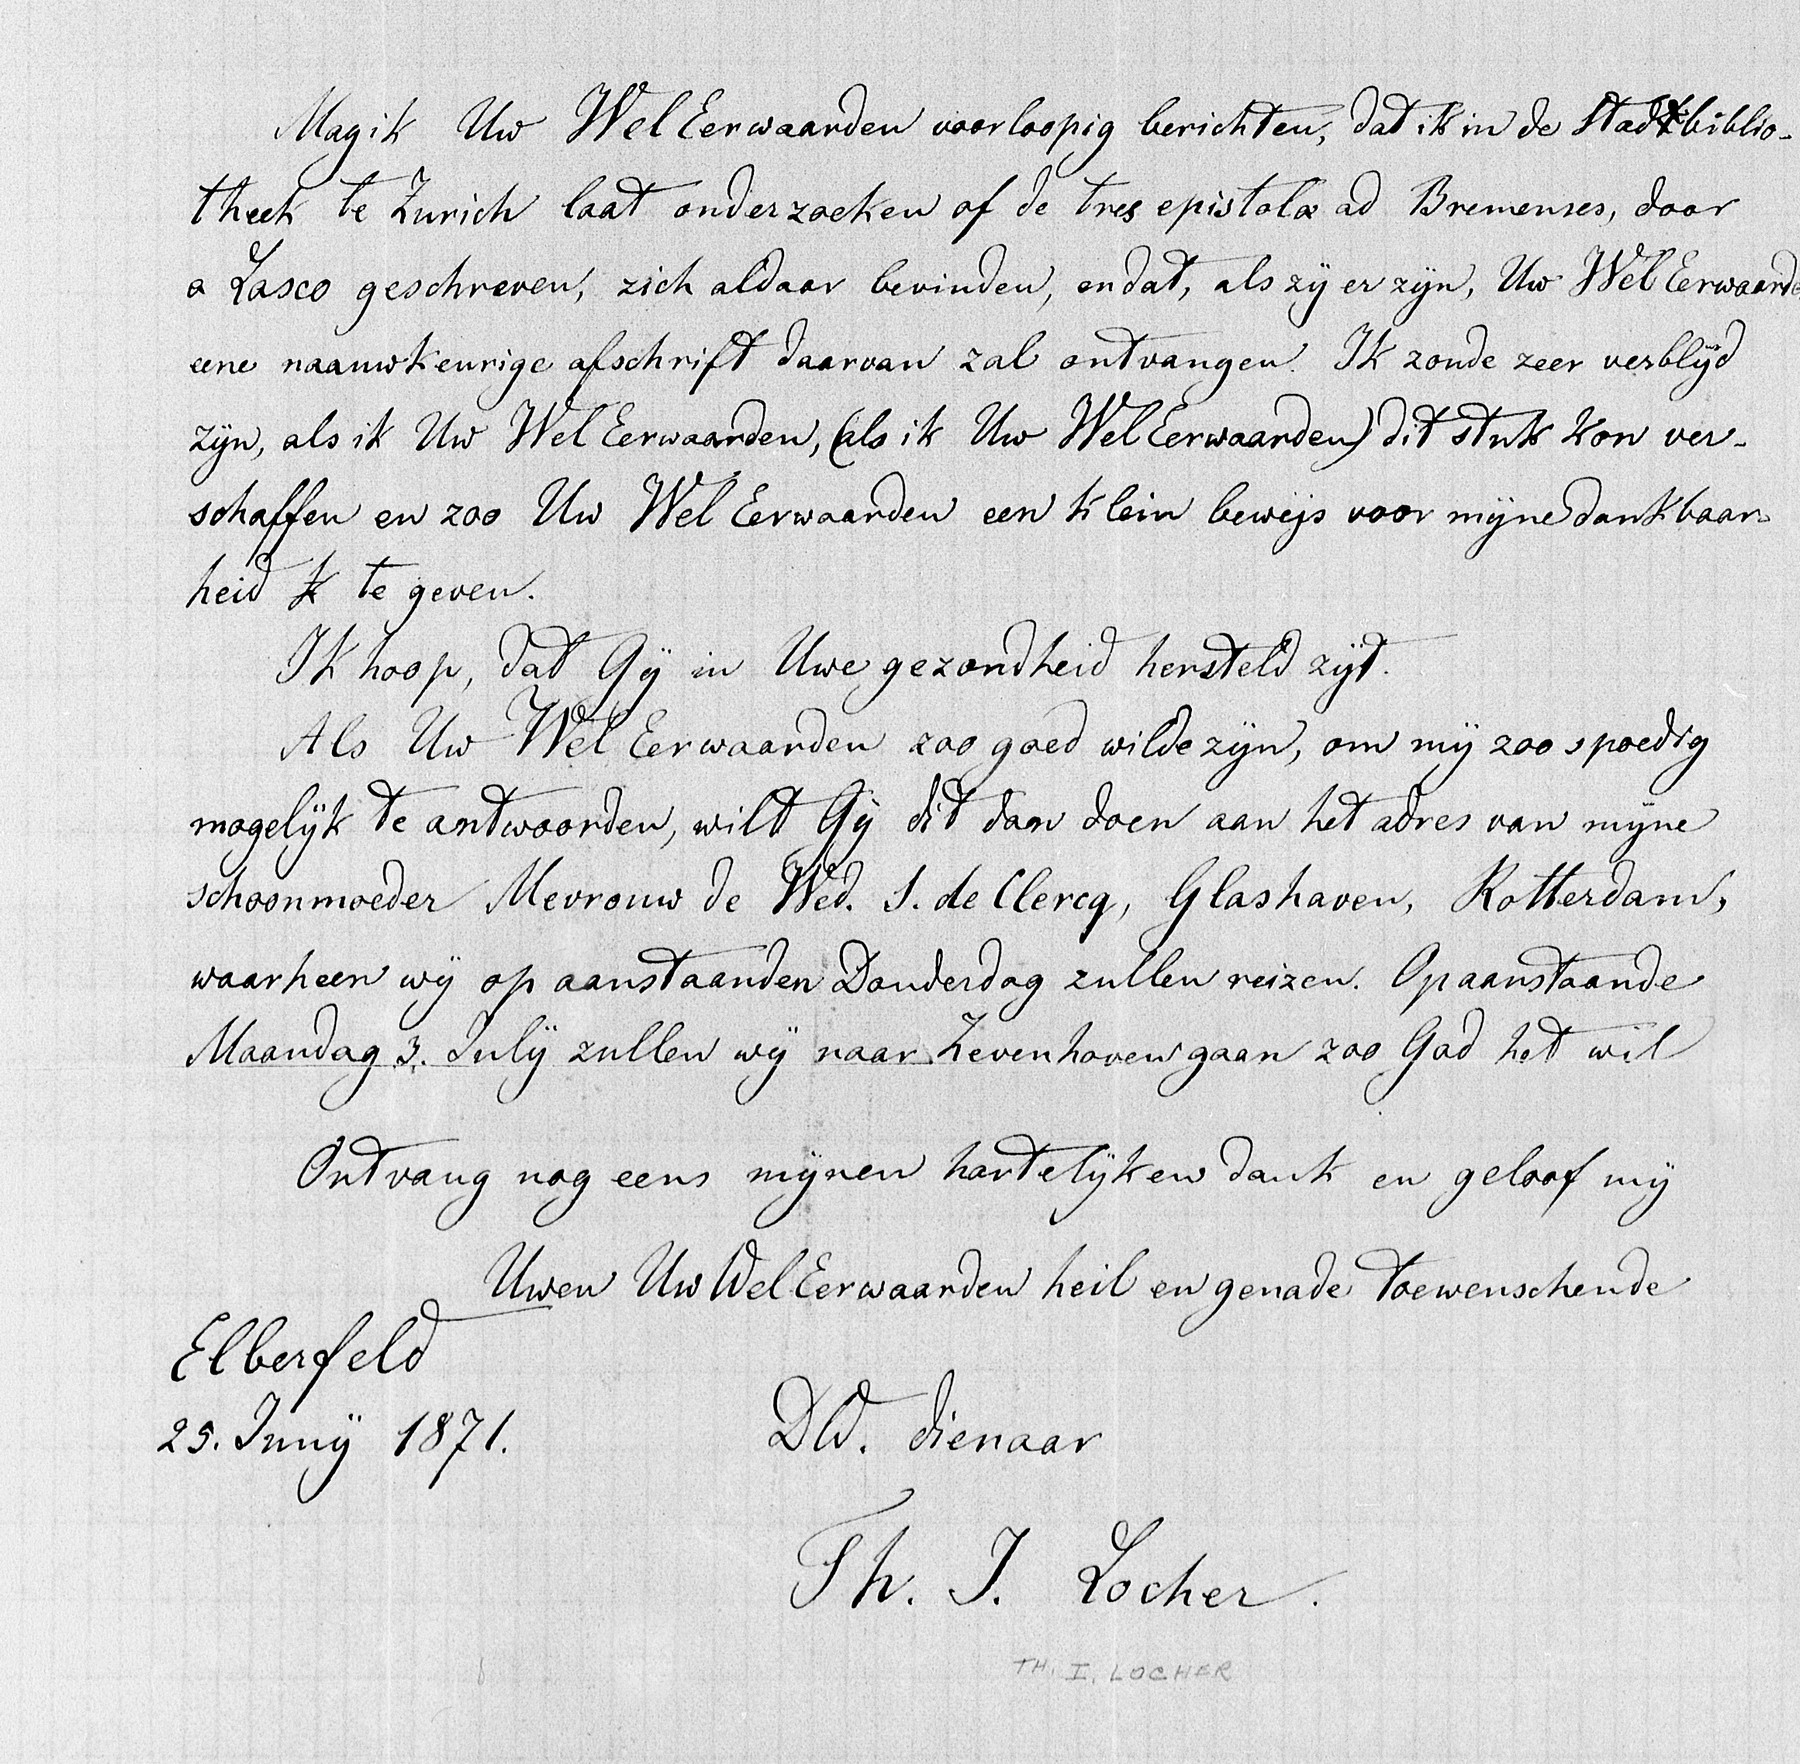 Mag ik Uw WelEerwaarden voorloopig berichten, dat ik in de Stadtbiblio-
theek te Zurich laat onderzoeken of de tres epistolæ ad Bremenses, door
a Lasco geschreven, zich aldaar bevinden, en dat, als zÿ er zÿn, Uw WelEerwaarde
eene naauwkeurige afschrift daarvan zal ontvangen. Ik zoude zeer verblÿd
zÿn, als ik Uw WelEerwaarden, (als ik Uw WelEerwaarden) dit stuk kon ver-
schaffen en zoo Uw WelEerwaarden een klein bewÿs voor mÿne dankbaar-
heid te geven.
Ik hoop, dat Gÿ in Uwe gezondheid hersteld zÿt.
Als Uw WelEerwaarden zoo goed wilde zÿn, om mÿ zoo spoedig
mogelÿk te antwoorden, wilt Gÿ dit dan doen aan het adres van mÿne
schoonmoeder Mevrouw de Wed. S. de Clercq, Glashaven, Rotterdam,
waarheen wÿ op aanstaanden Donderdag zullen reizen. Op aanstaande
Maandag 3. Julÿ zullen wÿ naar Zevenhoven gaan zoo God het wil
Ontvang nog eens mÿnen hartelÿken dank en geloof mÿ
Uwen Uw WelEerwaarden heil en genade toewenschende
Elberfeld
25. Junÿ 1871.
DW. dienaar
Th. J. Locher.
TH. I. LOCHER